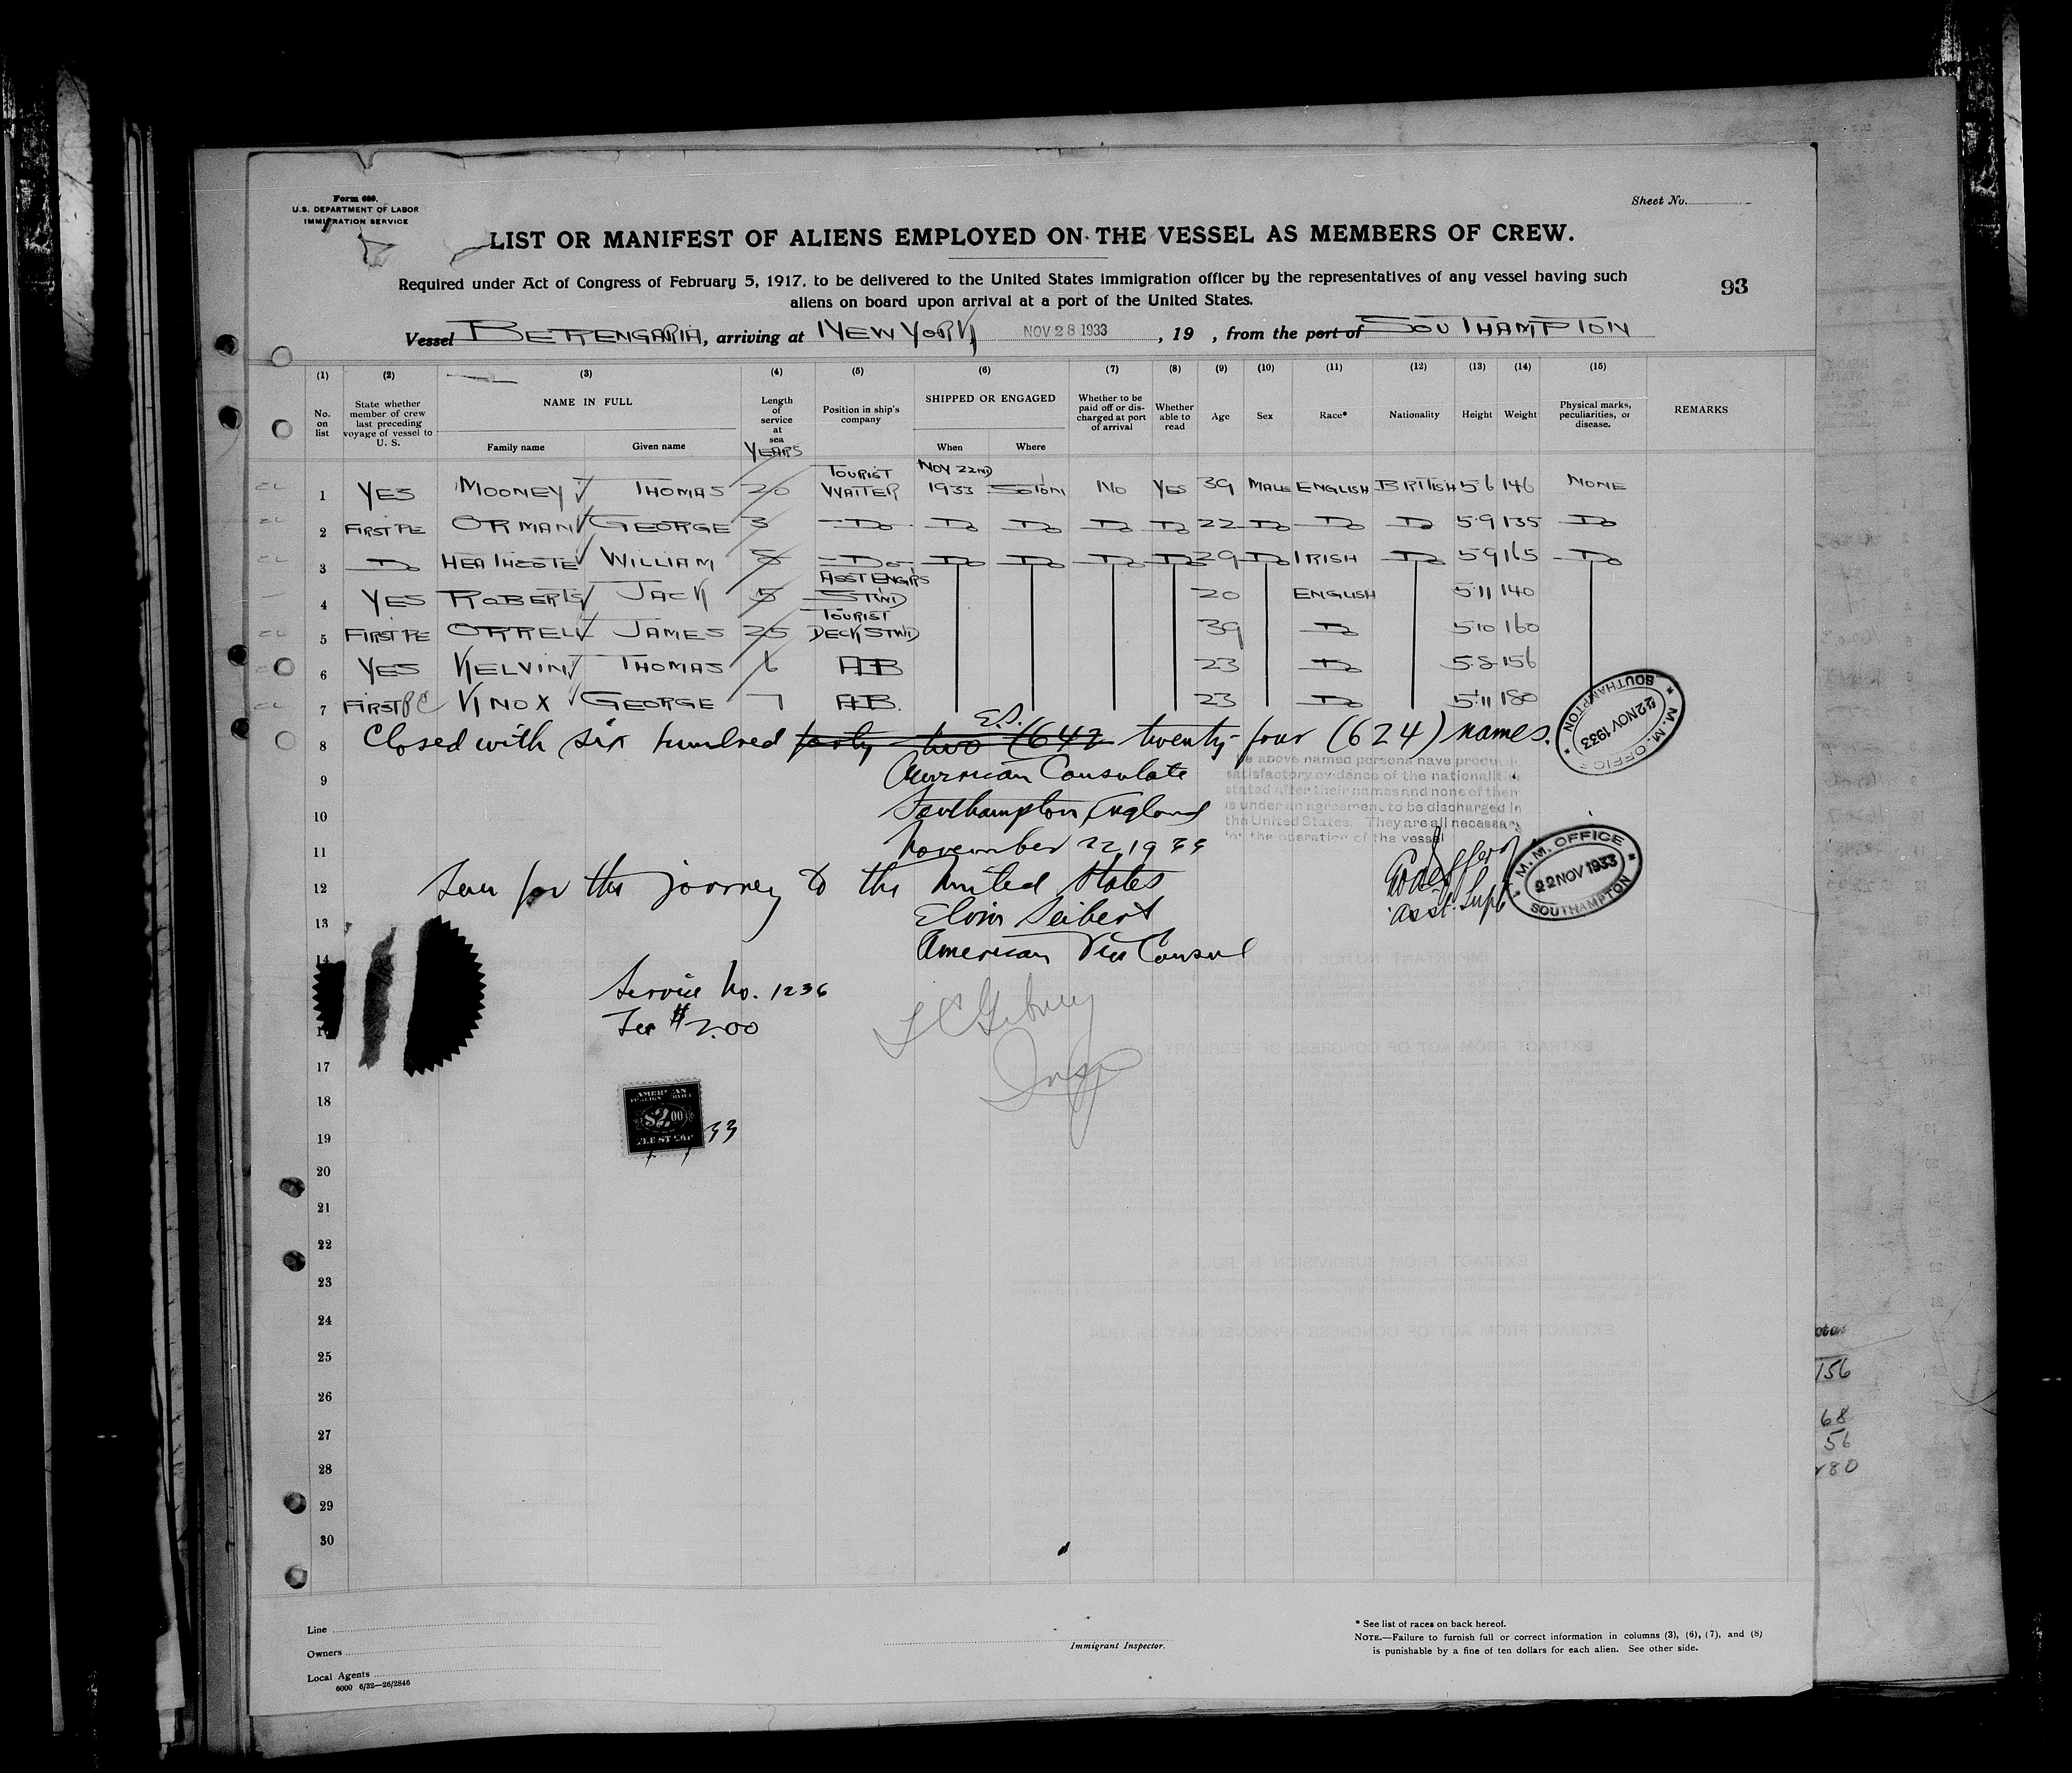 Form 680.
U.S. DEPARTMENT OF LABOR
IMMIGRATION SERVICE
Sheet No.
LIST OR MANIFEST OF ALIENS EMPLOYED ON THE VESSEL AS MEMBERS OF CREW.
Required under Act of Congress of February 5, 1917, to be delivered to the United States immigration officer by the representatives of any vessel having such
aliens on board upon arrival at a port of the United States.
93
Vessel BERENGARIA, arriving at NEW YORK NOV 28 1933, 19 , from the port of SOUTHAMPTON
(1) (2) (3) (4) (5) (6) (7) (8) (9) (10) (11) (12) (13) (14) (15)
No. on list State whether member of crew last preceding voyage of vessel to U. S. NAME IN FULL Family name Given name Length of service at sea YEARS Position in ship's company SHIPPED OR ENGAGED When Where Whether to be paid off or discharged at port of arrival Whether able to read Age Sex Race* Nationality Height Weight Physical marks, peculiarities, or disease. REMARKS
1 YES MOONEY THOMAS 20 TOURIST WAITER NOV 22ND 1933 SOTON NO YES 39 MALE ENGLISH BRITISH 5 6 146 NONE
2 FIRST PE ORMAN GEORGE 3 Do Do Do Do Do 22 Do Do Do 5·9 135 Do
3 Do HEATHCOTE WILLIAM 8 Do Do Do Do Do 29 Do IRISH Do 5·9 165 Do
4 YES ROBERTS JACK 5 ASST ENGRS STWD 20 ENGLISH 5·11 140
5 FIRST PE ORRELL JAMES 25 TOURIST DECK STWD 39 Do 5·10 160
6 YES KELVIN THOMAS 6 AB 23 Do 5·8 156
7 FIRST PE KNOX GEORGE 7 A.B. 23 Do 5·11 180
E.S.
8 Closed with six hundred forty two (642 twenty-four (624) names.
M. M. OFFICE 22 NOV 1933 SOUTHAMPTON
9 American Consulate
10 Southampton, England
11 November 22, 1933
above named persons have
satisfactory evidence of the
stated after their names and none of them
is under an agreement to be discharged in
the United States. They are all necessary
for the operation of the vessel
Asst. Supt
M. M. OFFICE 22 NOV 1933 SOUTHAMPTON
12 Seen for the journey to the United States
13 Elvin Seibert
14 American Vice Consul
Service No. 1236
Fee $2.00
17
18
19
AMERICAN FOREIGN SERVICE $2.00 FEE STAMP
33
20
21
22
23
24
25
26
27
28
29
30
156
68
56
Line
Owners
Local Agents
6000 6/32—26/2846
Immigrant Inspector.
* See list of races on back hereof.
NOTE.—Failure to furnish full or correct information in columns (3), (6), (7), and (8)
is punishable by a fine of ten dollars for each alien. See other side.